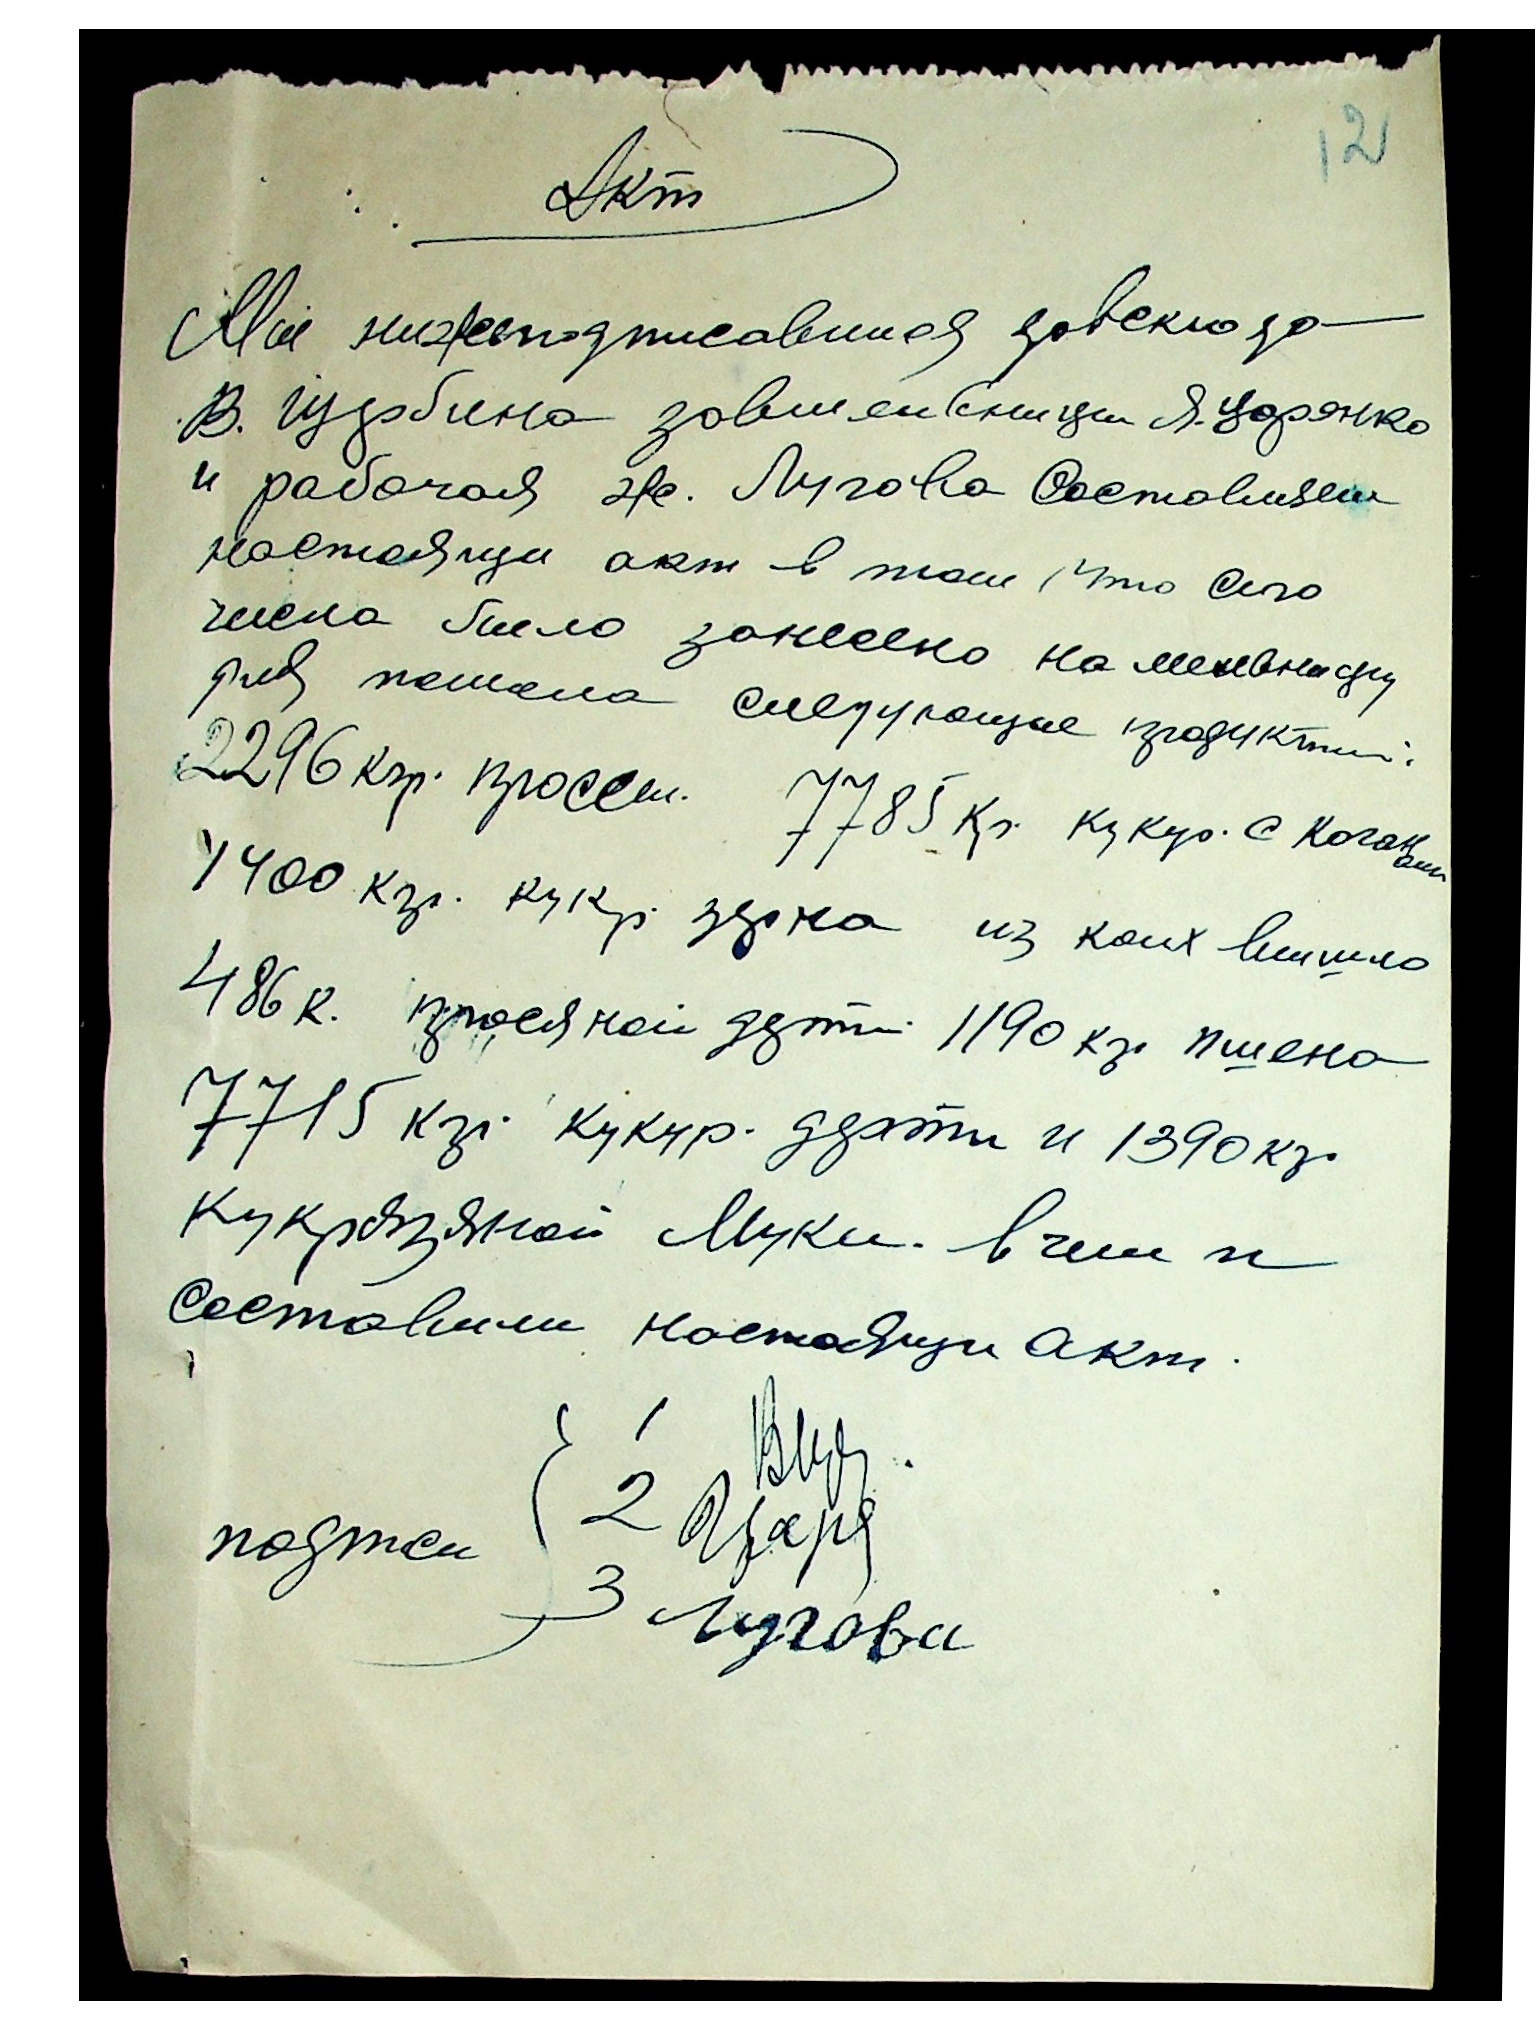 12
Акт
Мы нижеподписавшися завсклодо
В. Щербина завмельницы Я. Царянко
и рабочая Ж. Лугова Составляем
настоящи акт в том, что сиго
числа было занесено на мельницу
для помола следующие продукты:
2296 кгр. просы. 7785 кг. кукур. с кочанами
1400 кгр. кукр. зерна из коих вышло
486 к. просяной дерти 1190 кг. пшена
7715 кгр. кукур. дерти и 1390 кг.
кукрязяной Муки. в чем и
составили настоящи акт.
1
2 Царя
подпси
3 Лугова